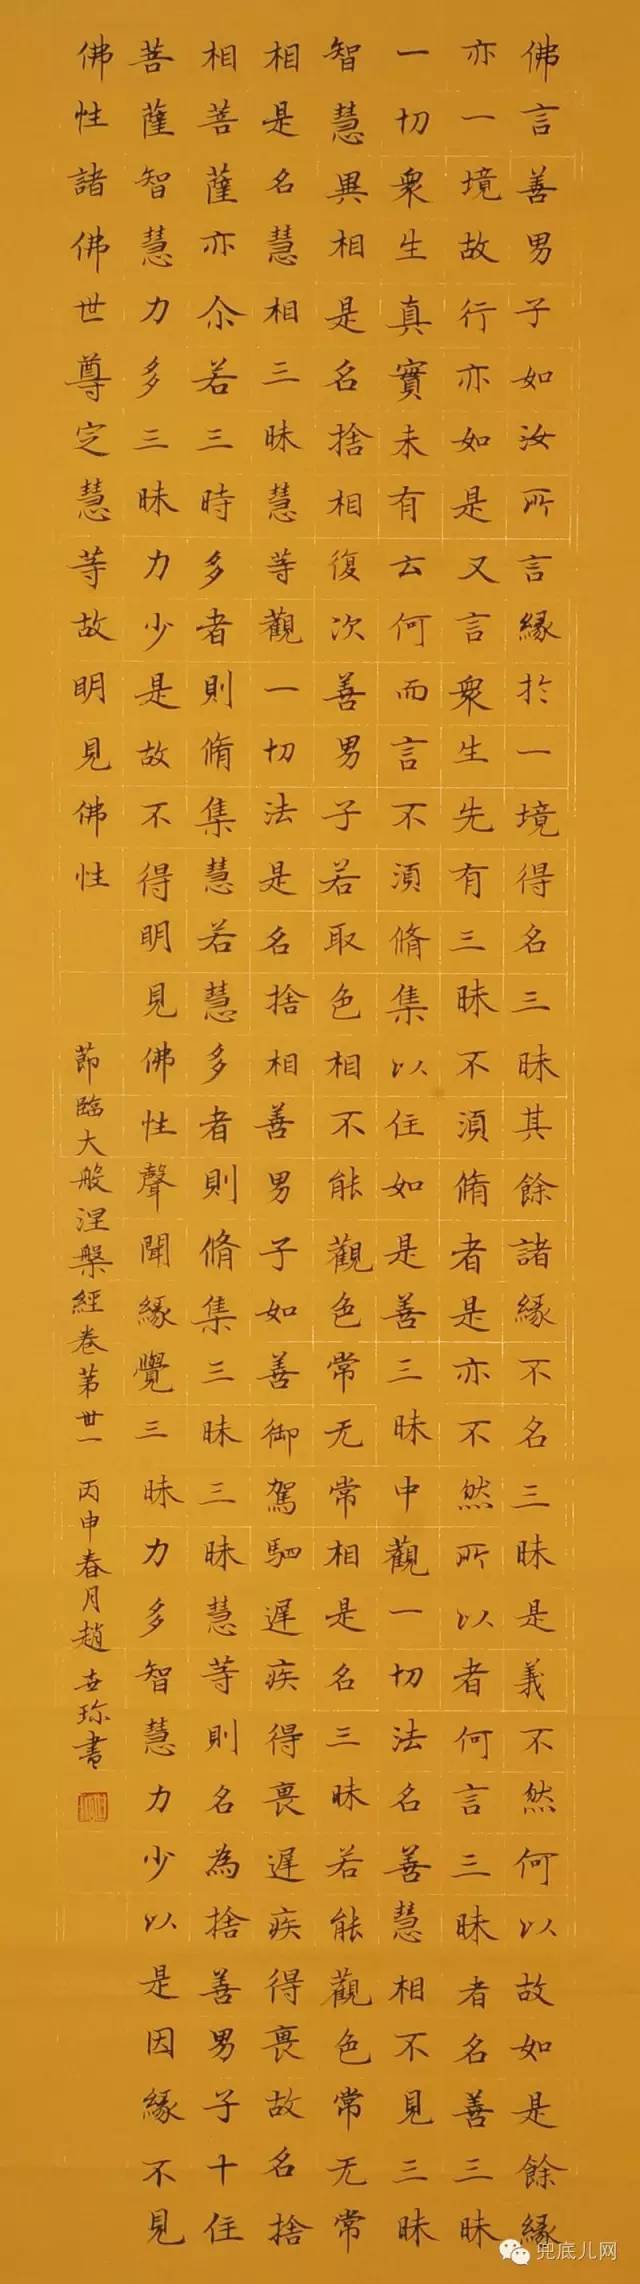 佛言善男子如汝所言緣於一境得名三昧其餘諸緣不名三昧是義不然何以故如是餘緣
亦一境故行亦如是又言衆生先有三昧不湏脩者是亦不然所以者何言三昧者名善三昧
一切衆生真實未有云何而言不湏脩集以住如是善三昧中觀一切法名善慧相不見三昧
智慧異相是名捨相復次善男子若取色相不能觀色常无常相是名三昧若能觀色常无常
相是名慧相三昧慧等觀一切法是名捨相善男子如善御駕駟遲疾得畏遲疾得畏故名捨
相菩薩亦尒若三時多者則脩集慧若慧多者則脩集三昧三昧慧等則名為捨善男子十住
菩薩智慧力多三昧力少是故不得明見佛性聲聞緣覺三昧力多智慧力少以是因緣不見
佛性諸佛世尊定慧等故明見佛性
節臨大般涅槃經卷第卅一 丙申春月趙世珎書
兜底儿网